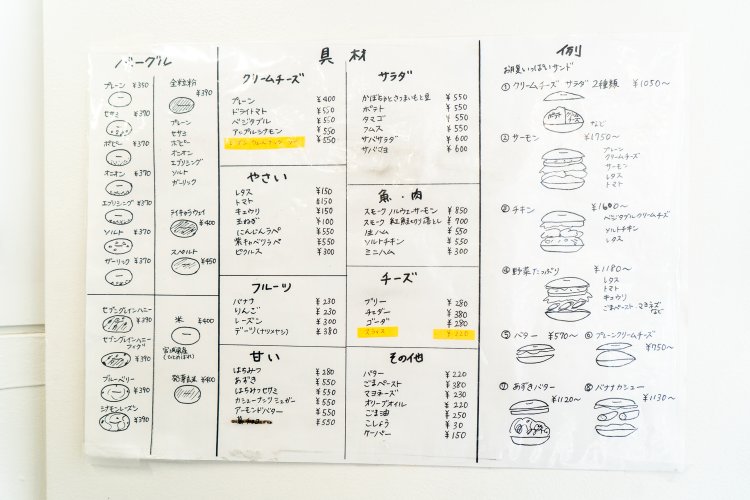 バーグル
プレーン ¥350
セサミ ¥370
ポピー ¥370
オニオン ¥370
エブリシング ¥370
ソルト ¥370
ガーリック ¥370
全粒粉
¥390
プレーン
セサミ
ポピー
オニオン
エブリシング
ソルト
ガーリック
¥400
スペルト
¥450
セブングレインハニー
¥390
セブングレインハニー
フィグ
¥390
ブルーベリー
¥390
シナモンレーズン
¥390
米
¥390
¥400
具材
クリームチーズ
プレーン ¥400
ドライトマト ¥550
ベジタブル ¥550
アップルシナモン ¥550
¥550
やさい
レタス ¥150
トマト ¥150
キュウリ ¥150
玉ねぎ ¥100
にんじんラペ ¥550
紫キャベツラペ ¥550
ピクルス ¥300
フルーツ
バナナ ¥230
りんご ¥230
レーズン ¥300
デーツ(ナツメヤシ) ¥380
甘い
はちみつ ¥280
あずき ¥550
はちみつセサミ ¥550
カシューナッツシュガー ¥550
アーモンドバター ¥550
¥550
サラダ
かぼちゃとさつまいもと豆 ¥550
ポテト ¥550
タマゴ ¥550
フムス ¥550
サバサラダ ¥600
サバマヨ ¥600
魚・肉
スモークノルウェーサーモン ¥850
スモーク紅鮭切り落とし ¥700
生ハム ¥550
ソルトチキン ¥550
ミニハム ¥300
チーズ
ブリー ¥280
チェダー ¥380
ゴーダ ¥280
スライス ¥120
その他
バター ¥220
ごまペースト ¥380
マヨネーズ ¥230
オリーブオイル ¥220
ごま油 ¥250
こしょう ¥30
ケーパー ¥150
例
お月見いっぱいサンド
① クリームチーズ サラダ 2種類 ¥1050〜
など
② サーモン ¥1750〜
プレーン
クリームチーズ
サーモン
レタス
トマト
③ チキン ¥1600〜
ベジタブルクリームチーズ
ソルトチキン
レタス
④ 野菜たっぷり ¥1180〜
レタス
トマト
キュウリ
ごまペースト・マヨネーズ
など
⑤ バター ¥570〜
⑥ プレーンクリームチーズ
¥750〜
⑦ あずきバター
¥1120〜
⑧ バナナカシュー
¥1130〜